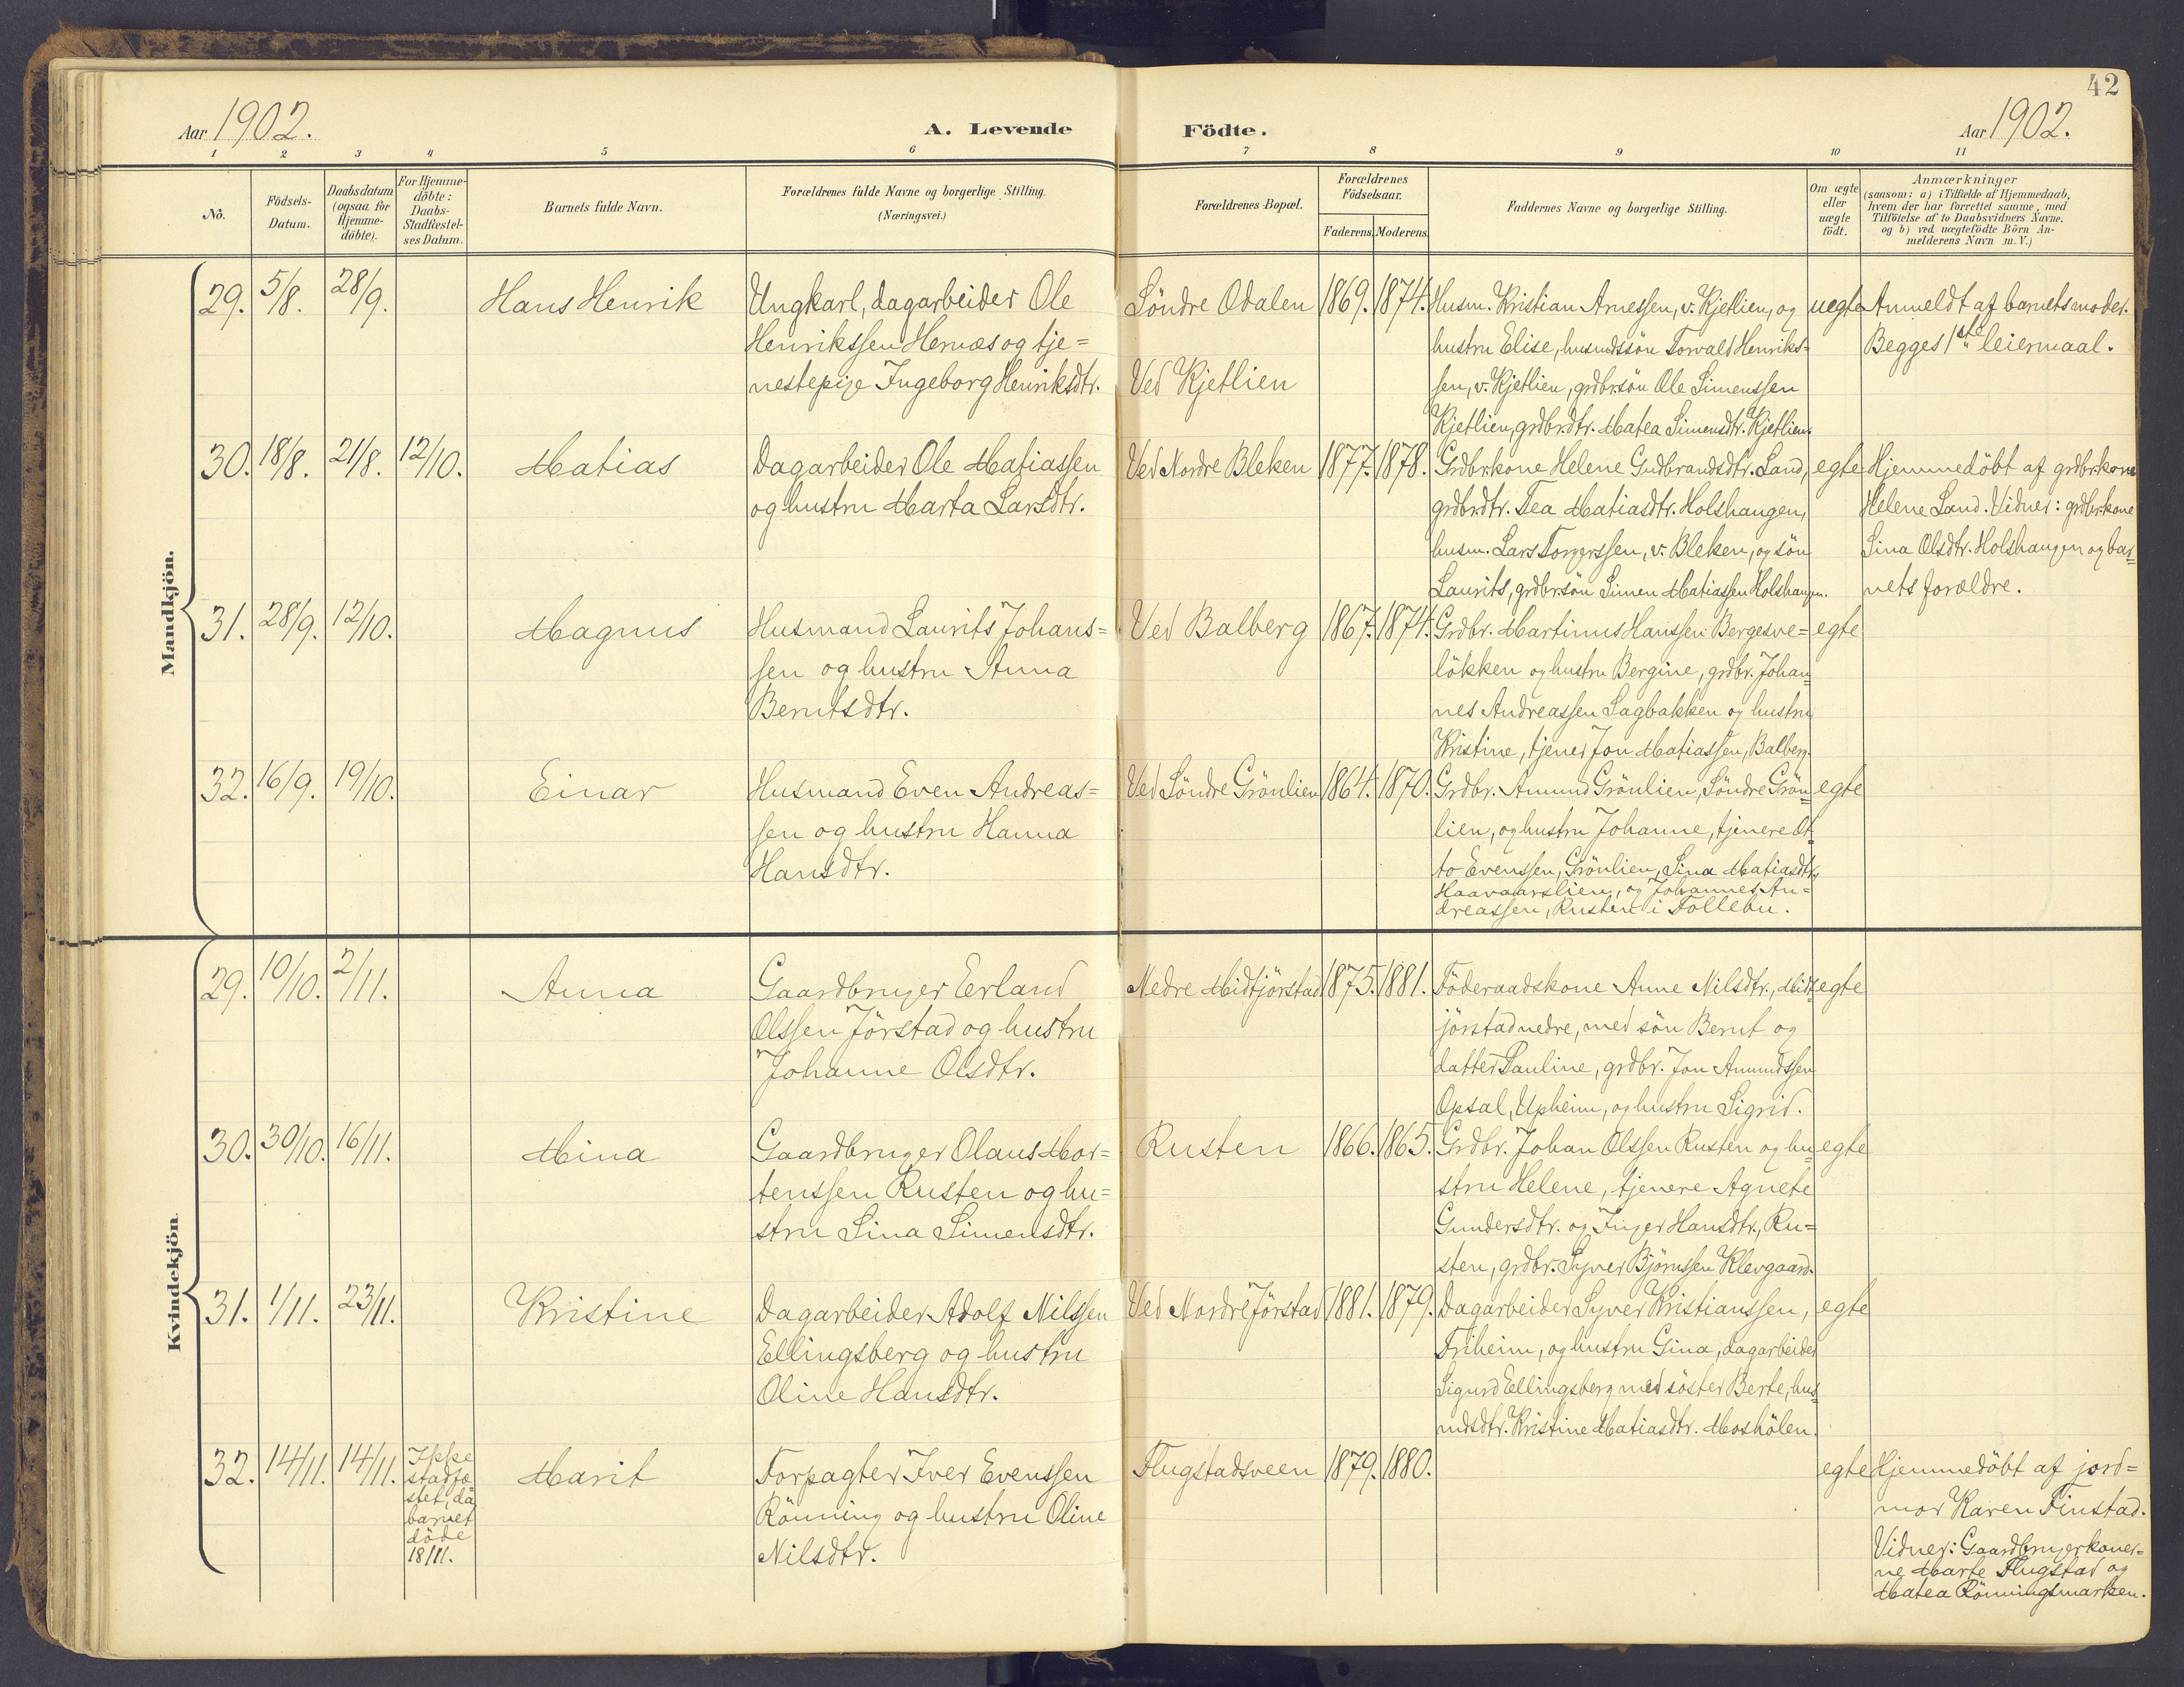 42
Aar 1902. A. Levende Födte. Aar 1902.
1 2 3 4 5 6 7 8 9 10 11
No.
Födsels-
Datum.
Daabsdatum
(ogsaa for
Hjemme-
döbte).
For Hjemme-
döbte:
Daabs-
Stadfæstel-
ses Datum.
Barnets fulde Navn.
Forældrenes fulde Navne og borgerlige Stilling.
(Næringsvei.)
Forældrenes Bopæl.
Forældrenes
Födselsaar.
Faderens. Moderens.
Faddernes Navne og borgerlige Stilling.
Om ægte
eller
uægte
født.
Anmærkninger
(saasom: a) i Tilfælde af Hjemmedaab,
hvem der har forrettet samme, med
Tilföielse af to Daabsvidners Navne.
og b) ved uægtefödte Börn An-
melderens Navn m.V.)
Mandkjön.
29. 5/8. 28/9. Hans Henrik
Ungkarl, dagarbeider Ole
Henrikssen Hernæs og tje=
nestepige Ingeborg Henriksdtr.
Söndre Odalen
Ved Kjetlien
1869. 1874.
Husm. Kristian Arnessen, v. Kjetlien, og
hustru Elise, husmdssön Torvald Henriks=
sen, v. Kjetlien, grdbr.sön Ole Simenssen
Kjetlien, grdbr.dtr. Matea Simensdtr. Kjetlien.
uegte
Anmeldt af barnets moder.
Begges 1ste leiermaal.
30. 18/8. 21/8. 12/10. Matias
Dagarbeider Ole Matiassen
og hustru Marta Larsdtr.
Ved Nordre Bleken 1877. 1878.
Grdbr.kone Helene Gudbrandsdtr. Land,
grdbr.dtr. Tea Matiasdtr. Holshaugen,
husm. Lars Torgerssen, v. Bleken, og sön
Laurits, grdbr.sön Simen Matiassen Holshaugen.
egte
Hjemmedöbt af grdbr.kone
Helene Land. Vidner: grdbr.kone
Sina Olsdtr. Holshaugen og bar=
nets forældre.
31. 28/9. 12/10. Magnus
Husmand Laurits Johans=
sen og hustru Anna
Berntsdtr.
Ved Balberg 1867. 1874.
Grdbr. Martinus Hanssen Bergesve=
lökken og hustru Bergine, grdbr. Johan=
nes Andreassen Sagbakken og hustru
Kristine, tjener Jon Matiassen, Balberg.
egte
32. 16/9. 19/10. Einar
Husmand Even Andreas=
sen og hustru Hanna
Hansdtr.
Ved Söndre Grönlien 1864. 1870.
Grdbr. Amund Grönlien, Söndre Grön=
lien, og hustru Johanne, tjenere Ot=
to Evenssen, Grönlien, Sina Matiasdtr.,
Haavaarslien, og Johannes An=
dreassen, Rusten i Follebu.
egte
Kvindekjön.
29. 10/10. 2/11. Anna
Gaardbruger Erland
Olssen Jörstad og hustru
Johanne Olsdtr.
Nedre Midtjörstad 1875. 1881.
Föderaadskone Anne Nilsdtr., Midt=
jörstad nedre, med sön Bernt og
datter Pauline, grdbr. Jon Amundssen
Opsal, Upheim, og hustru Sigrid.
egte
30. 30/10. 16/11. Mina
Gaardbruger Olaus Mor=
tenssen Rusten og hu=
stru Sina Simensdtr.
Rusten 1866. 1865.
Grdbr. Johan Olssen Rusten og hu=
stru Helene, tjenere Agnete
Gundersdtr. og Inger Hansdtr., Ru=
sten, grdbr. Syver Bjørnssen Klevgaard.
egte
31. 1/11. 23/11. Kristine
Dagarbeider Adolf Nilssen
Ellingsberg og hustru
Oline Hansdtr.
Ved Nordre Jörstad 1881. 1879.
Dagarbeider Syver Kristianssen,
Friheim, og hustru Gina, dagarbeider
Sigurd Ellingsberg med söster Berte, hus=
mdsdtr. Kristine Matiasdtr. Moshölen.
egte
32. 14/11. 14/11.
Ikke
stadfæ
stet, da
barnet
döde
18/11.
Marit
Forpagter Iver Evenssen
Rönning og hustru Oline
Nilsdtr.
Flugstadsveen 1879. 1880.
egte
Hjemmedöbt af jord=
mor Karen Finstad.
Vidner: Gaardbrugerkoner=
ne Marte Flugstad og
Matea Rönningsmarken.